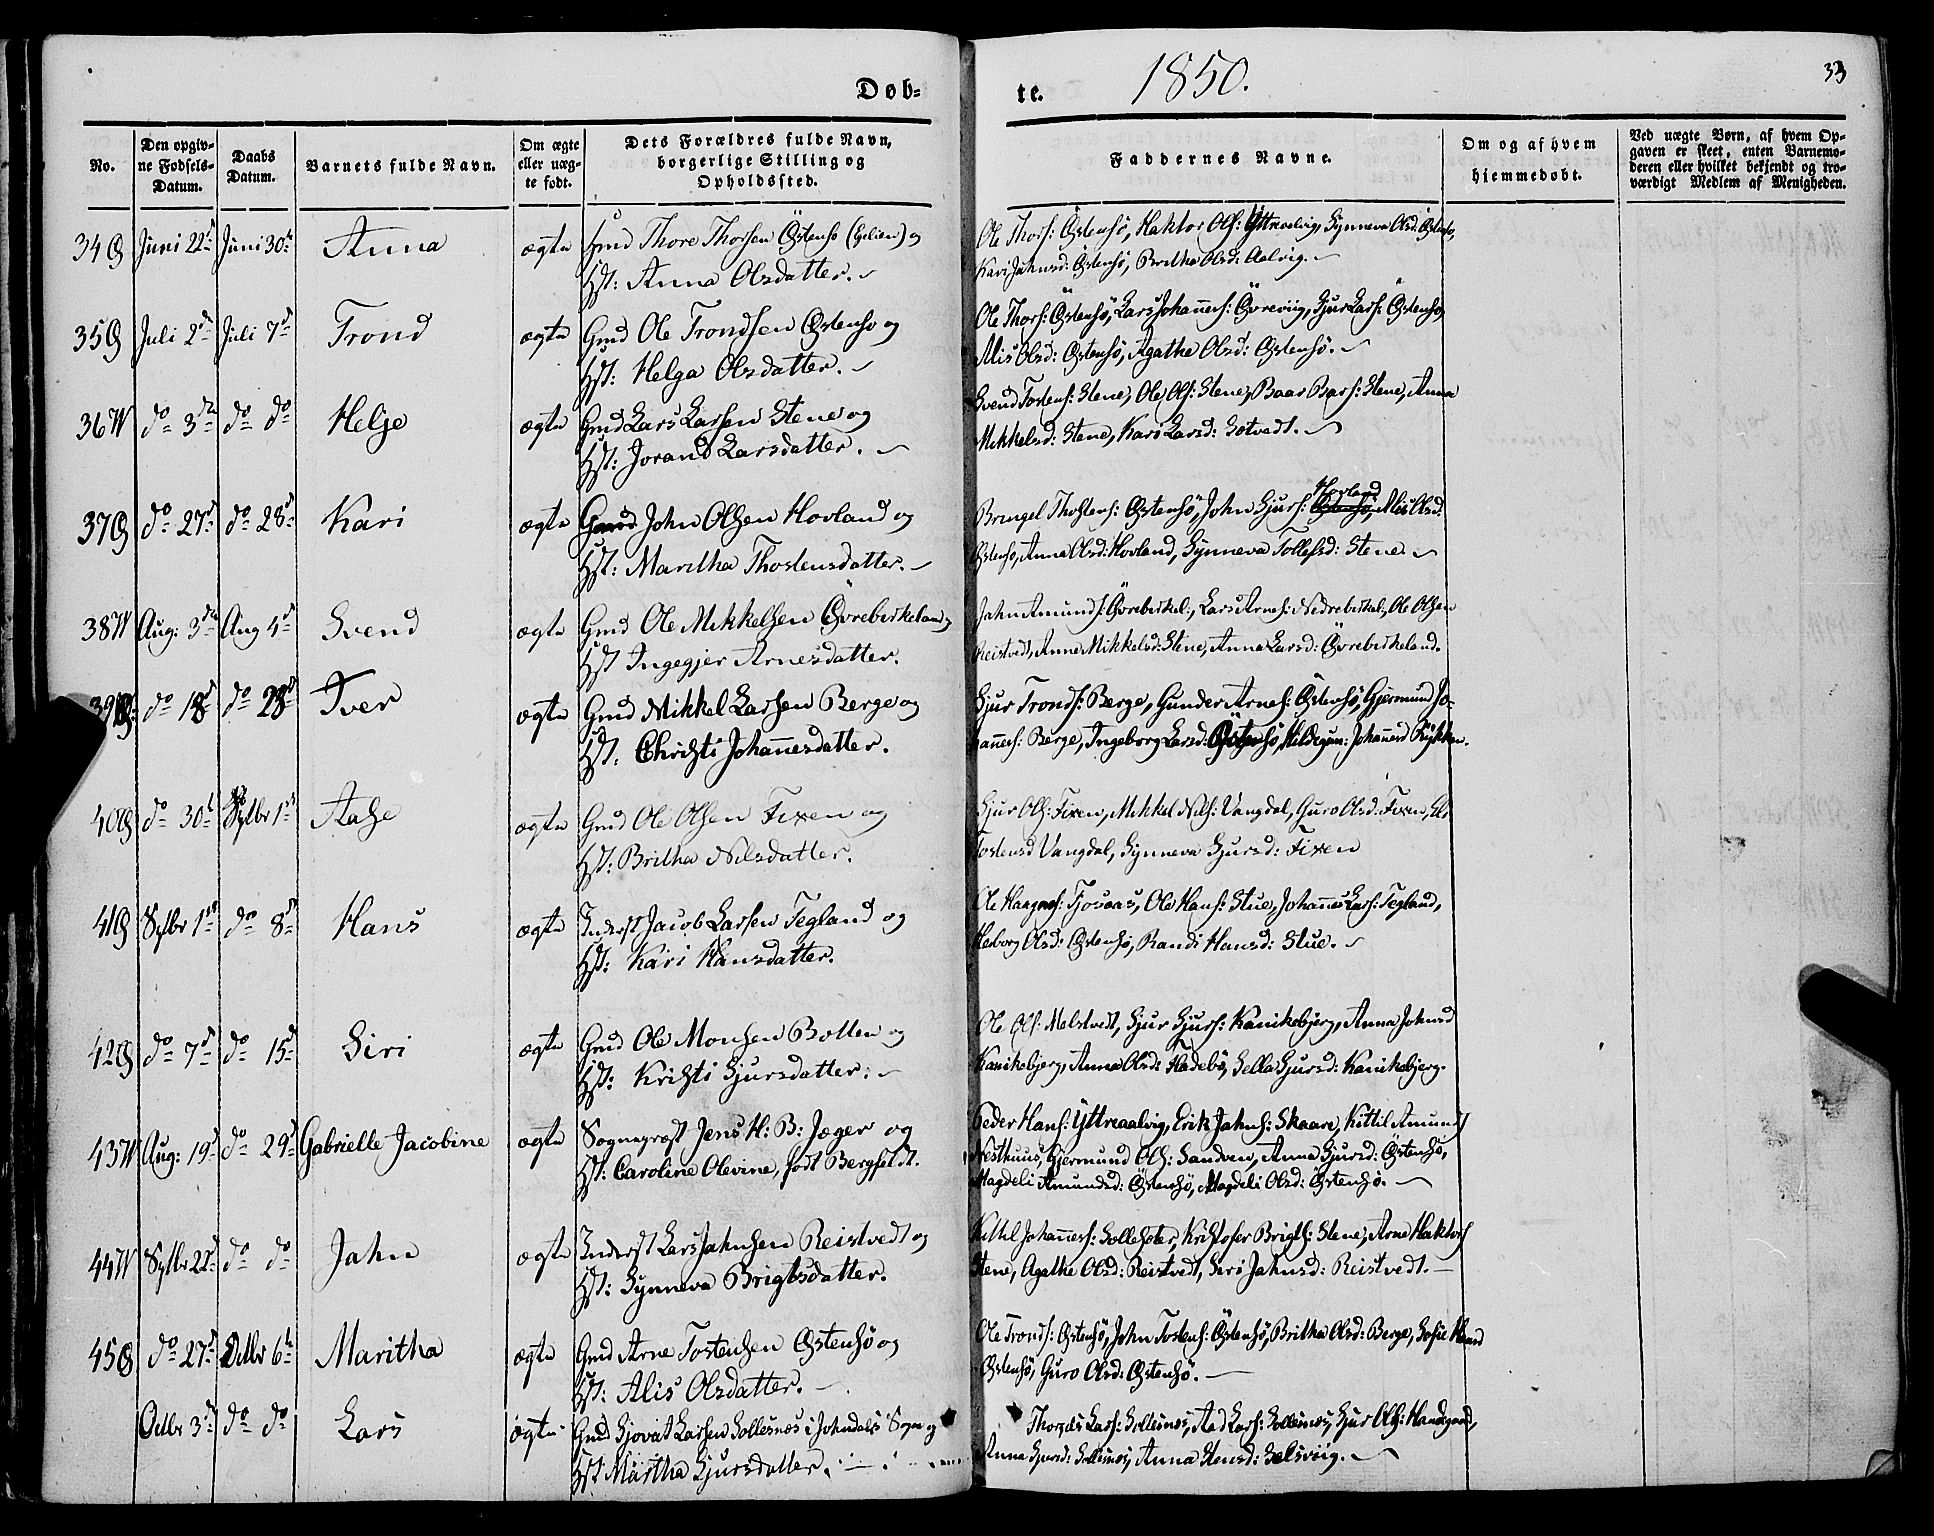 Døb-
te.
1850.
33
No.
Den opgiv-
ne Fødsels-
Datum.
Daabs
Datum.
Barnets fulde Navn.
Om ægte
eller uæg-
te født.
Dets Forældres fulde Navn,
borgerlige Stilling og
Opholdssted.
Faddernes Navne.
Om og af hvem
hjemmedøbt.
Ved uægte Børn, af hvem Op-
gaven er skeet, enten Barnemo-
deren eller hvilket bekjendt og tro-
værdigt Medlem af Menigheden.
34 Juni 22 Juni 30 Anna ægte Gmd Thore Thorsen Östensö og
Hst: Anna Olsdatter.
Ole Thors: Östensö, Haktor Ols: Yttreaalvig, Synneva Olsd: Östensö,
Kari Jahnsd: Östensö, Britha Olsd: Aalvig.
35 Juli 2 Juli 7 Trond ægte Gmd Ole Trondsen Östensö og
Hst: Helga Olsdatter.
Ole Thors: Östensö, Lars Johannes: Övreviig, Sjur Lars: Östensö,
Alis Olsd: Östensö, Agatha Olsd: Östensö.
36 do 3 do do Helje ægte Gmd Lars Larsen Stene og
Hst: Jorand Larsdatter.
Svend Tostens: Stene, Ole Ols: Stene, Baar Bars: Stene, Anna
Mikkelsd: Stene, Kari Larsd: Sotvedt.
37 do 27 do 28 Kari ægte Gmd John Olsen Hovland og
Hst: Maritha Thostensdatter.
Hovland
Brengel Thostens: Östensö, John Sjurs: Östensö, Alis Olsd:
Östensö, Anna Olsd: Hovland, Synneva Tollefsd: Stene.
38 Aug: 3 Aug 4 Svend ægte Gmd Ole Mikkelsen Övrebirkeland
Hst Ingegjer Arnesdatter.
Jahn Amunds: Övrebirkel:, Lars Arnes: Nedrebirkel, Ole Olsen
Reistvedt, Anna Mikkelsd: Stene, Anna Larsd: Övrebirkeland.
39 do 18 do Iver ægte Gmd Mikkel Larsen Berge og
Hst: Christi Johannesdatter.
Sjur Tronds: Berge, Gunder Arnes: Östensö, Gjermund Jo-
hannes: Berge, Ingeborg Larsd: Östensö, Johannesd Rykken.
40 do 30 Sptbr 1 Aase ægte Gmd Ole Olsen Fixen og
Hst: Britha Nilsdatter.
Sjur Ols: Fixen, Mikkel Nils: Vangdal, Guro Olsd: Fixen,
Tostensd Vangdal, Synneva Sjursd: Fixen
41 Sptbr 1 do 8 Hans ægte Inderst Jacob Larsen Tegland og
Hst: Kari Hansdatter.
Ole Haagens: Tjosaas, Ole Hans: Stue, Johannes Lars: Tegland,
Herborg Olsd: Östensö, Randi Hansd: Stue.
42 do 7 do 15 Siri ægte Gmd Ole Monsen Botten og
Hst: Kristi Sjursdatter:
Ole Ols: Melstvedt, Sjur Sjurs: Kanikebjerg, Anna Johnsd
Kanikebjerg, Anna Olsd: Hadebö, Sella Sjursd: Kanikebjerg.
43 Aug: 19 do 29 Gabrielle Jacobine ægte Sognepræst Jens H: B: Jæger og
Hst: Caroline Olevine, født Bergfeldt.
Peder Hans: Yttreaalvig, Erik Jahns: Skaare, Kittil Amunds
Nesthuus, Gjermund Ols: Sandven, Anna Sjursd: Östensö,
Magdeli Amundsd: Östensö, Magdeli Olsd: Östensö.
44 Sptbr 22 do do Jahn ægte Inderst Lars Jahnsen Reistvedt og
Hst: Synneva Brigtsdatter.
Kittil Johannes: Sollesöter, Kristofer Brigts: Stene, Arne Haktors
Stene, Agatha Olsd: Reistvedt, Siri Jahnsd: Reistvedt.
45 do 27 Octbr 6 Maritha ægte Gmd Arne Tostensen Östensö og
Hst: Alis Olsdatter.
Ole Tronds: Östensö, John Tostens: Östensö, Britha Olsd: Berge, Sofie
Östensö, Guro Olsd: Östensö.
Octbr 3 do do Lars ægte Gmd Sjovat Larsen Sollesnes i Johndals Sogn og
Hst Maritha Sjursdatter.
Lars: Sollesnes, Aad Lars: Sollesnes, Sjur Ols: Handegaard,
Anna Sjursd: Sollesnes, Anna Stensd: Selsviig.